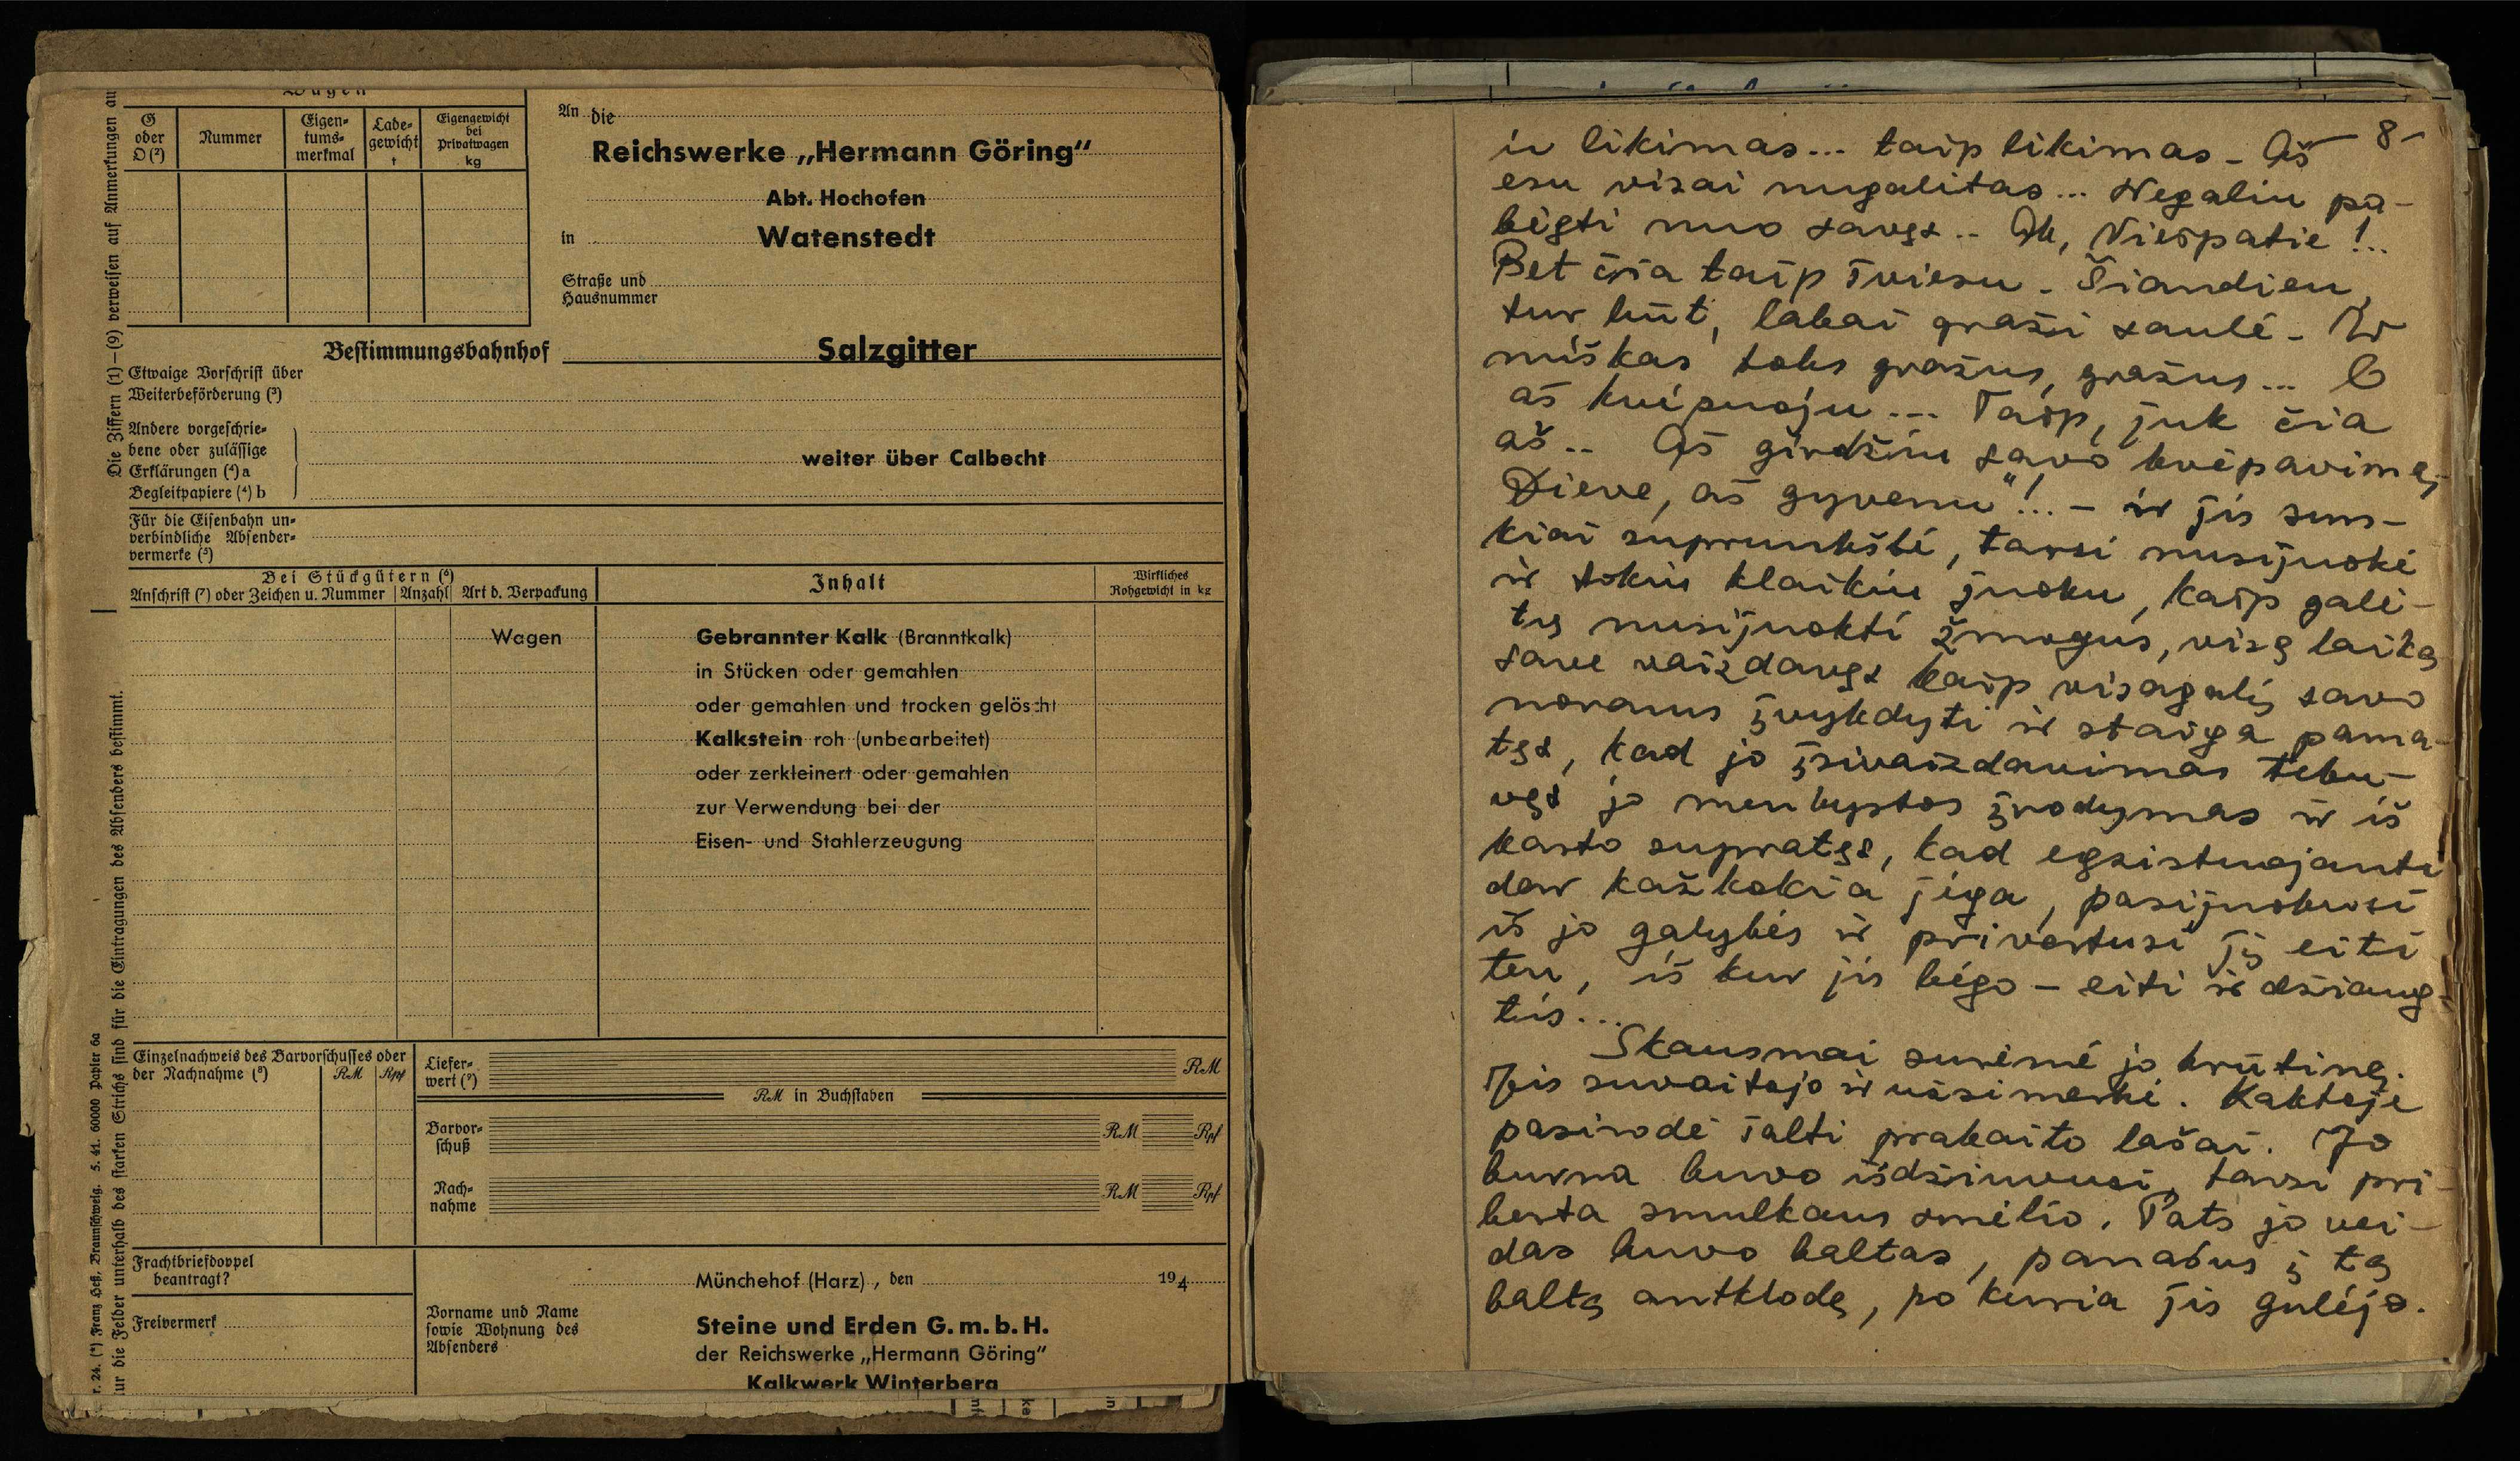 Wagen
G oder O (²)
Nummer
Eigen-tums-merkmal
Lade-gewicht t
Eigengewicht bei Privatwagen kg
An die
Reichswerke „Hermann Göring“
Abt. Hochofen
in Watenstedt
Straße und
Hausnummer
Bestimmungsbahnhof Salzgitter
Etwaige Vorschrift über
Weiterbeförderung (³)
Andere vorgeschrie-
bene oder zulässige
Erklärungen (⁴) a
Begleitpapiere (⁴) b
weiter über Calbecht
Für die Eisenbahn un-
verbindliche Absender-
vermerke (⁵)
Bei Stückgütern (⁶)
Anschrift (⁷) oder Zeichen u. Nummer
Anzahl
Art d. Verpackung
Inhalt
Wirkliches
Rohgewicht in kg
Wagen
Gebrannter Kalk (Branntkalk)
in Stücken oder gemahlen
oder gemahlen und trocken gelöscht
Kalkstein roh (unbearbeitet)
oder zerkleinert oder gemahlen
zur Verwendung bei der
Eisen- und Stahlerzeugung
Einzelnachweis des Barvorschusses oder
der Nachnahme (⁸) RM Rpf
Liefer-
wert (⁹) RM
RM in Buchstaben
Barvor-
schuß RM Rpf
Nach-
nahme RM Rpf
Frachtbriefdoppel
beantragt?
Freivermerk
Münchehof (Harz), den 194
Vorname und Name
sowie Wohnung des
Absenders
Steine und Erden G.m.b.H.
der Reichswerke „Hermann Göring“
Kalkwerk Winterberg
Die Ziffern (1)–(9) verweisen auf Anmerkungen au
ur die Felder unterhalb des starken Strichs sind für die Eintragungen des Absenders bestimmt.
r. 24. (*) Franz Heß, Braunschweig. 5. 41. 60000 Papier 6a
8-
ir likimas... taip likimas - Aš
esu visai nugalitas... Negaliu pa-
bėgti nuo savęs.. Ak, Viešpatie!..
Bet čia taip šviesu - Šiandien,
tur būt, labai graži saulė - Ir
miškas toks gražus, gražus... O
aš kvėpuoju... Taip, juk čia
aš.. Aš girdžiu savo kvėpavimą,
Dieve, aš gyvenu"!... - ir jis sun-
kiai suprunkštė, tarsi nusijuokė
ir tokiu klaikiu juoku, kaip galė-
tų nusijuokti žmogus, visą laiką
save vaizdavęs kaip visagalį savo
norams įvykdyti ir staiga pama-
tęs, kad jo įsivaizdavimas tebu-
vęs jo menkystos įrodymas ir iš
karto supratęs, kad egzistuojanti
dar kažkokia jėga, pasijuokusi
iš jo galybės ir privertusi jį eiti
ten, iš kur jis bėgo - eiti ir džiaug-
tis...
Skausmai surėmė jo krūtinę.
Jis suvaitojo ir užsimerkė. Kaktoje
pasirodė šalti prakaito lašai. Jo
burna buvo išdžiuvusi, tarsi pri-
berta smulkaus smėlio. Pats jo vei-
das buvo baltas, panašus į tą
baltą antklodę, po kuria jis gulėjo.